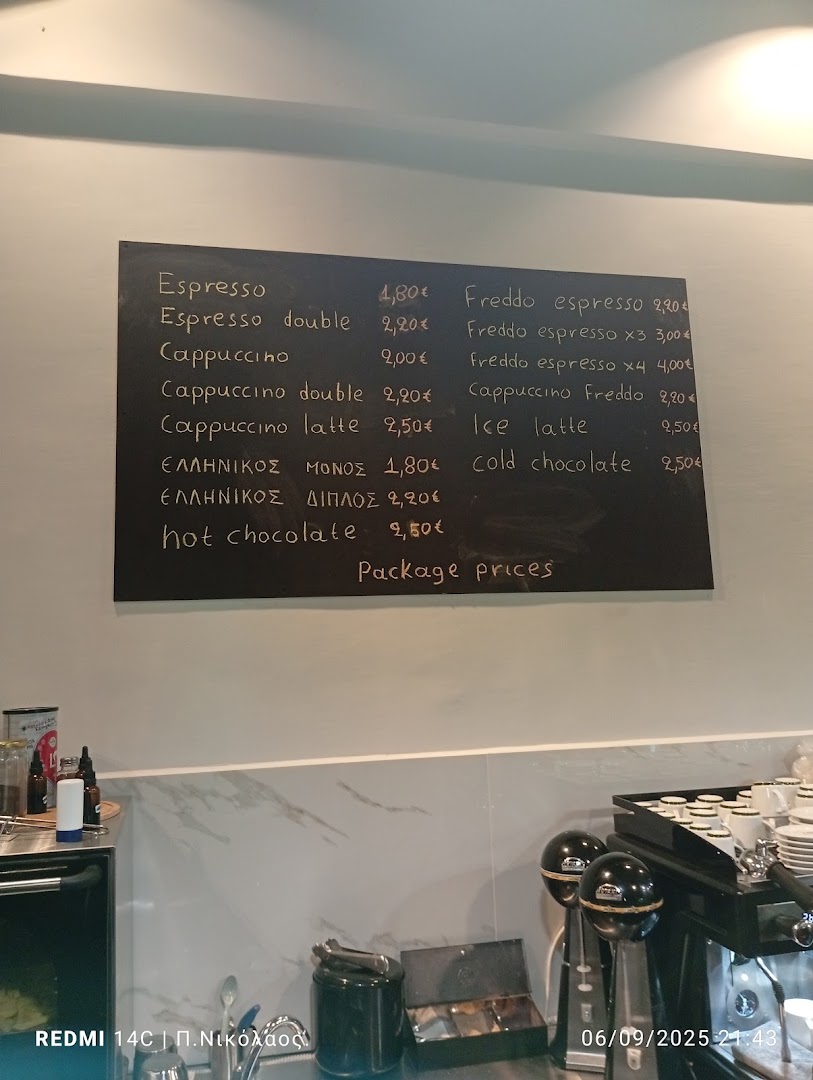 Espresso 1,80€
Espresso double 2,20€
Cappuccino 2,00€
Cappuccino double 2,20€
Cappuccino latte 2,50€
ΕΛΛΗΝΙΚΟΣ ΜΟΝΟΣ 1,80€
ΕΛΛΗΝΙΚΟΣ ΔΙΠΛΟΣ 2,20€
hot chocolate 2,50€
Freddo espresso 2,20€
Freddo espresso x3 3,00€
Freddo espresso x4 4,00€
Cappuccino Freddo 2,20€
Ice latte 2,50€
cold chocolate 2,50€
Package prices
REDMI 14C | Π.Νικόλαος
06/09/2025 21:43